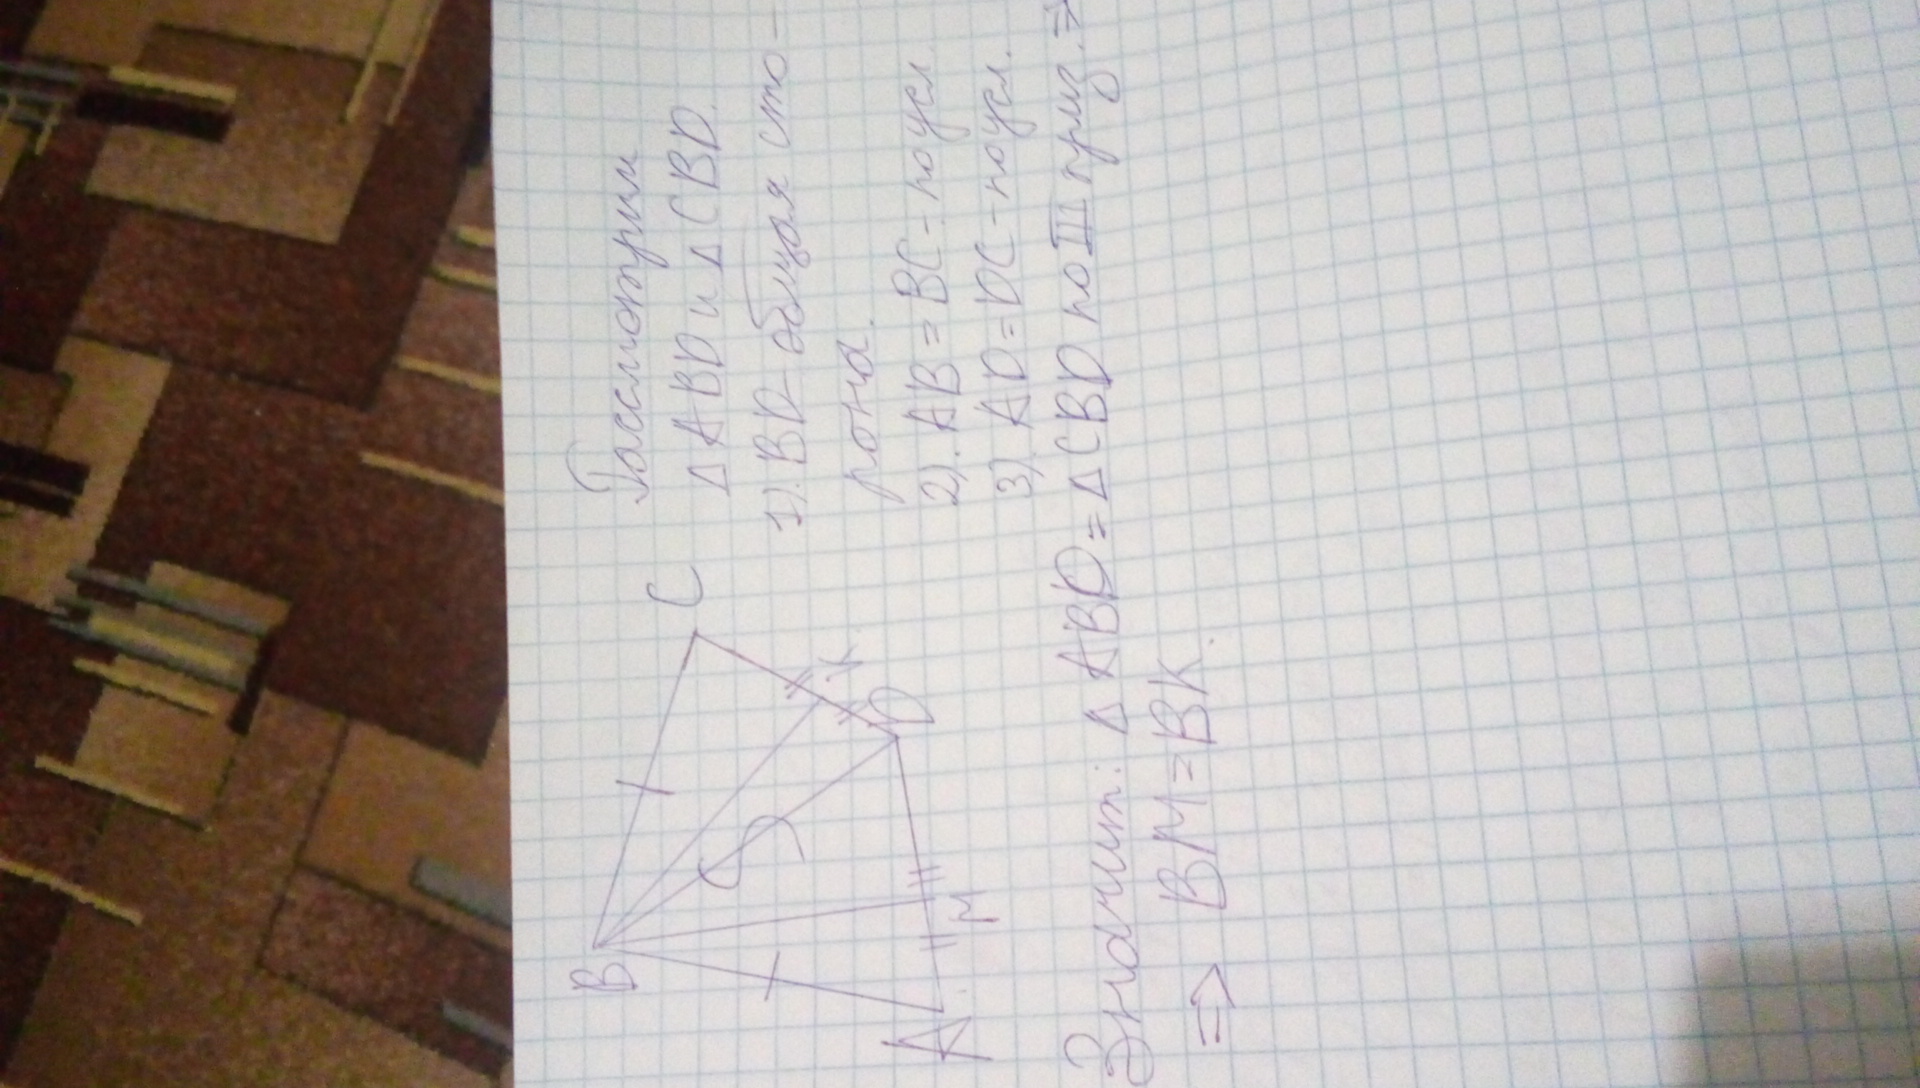 B
C
A
M
D
K
Рассмотрим
Δ ABD и Δ CBD.
1). BD - общая сто-
рона.
2). AB = BC - по усл.
3). AD = DC - по усл.
Значит: Δ ABD = Δ CBD по III приз. ⇒
⇒ BM = BK.